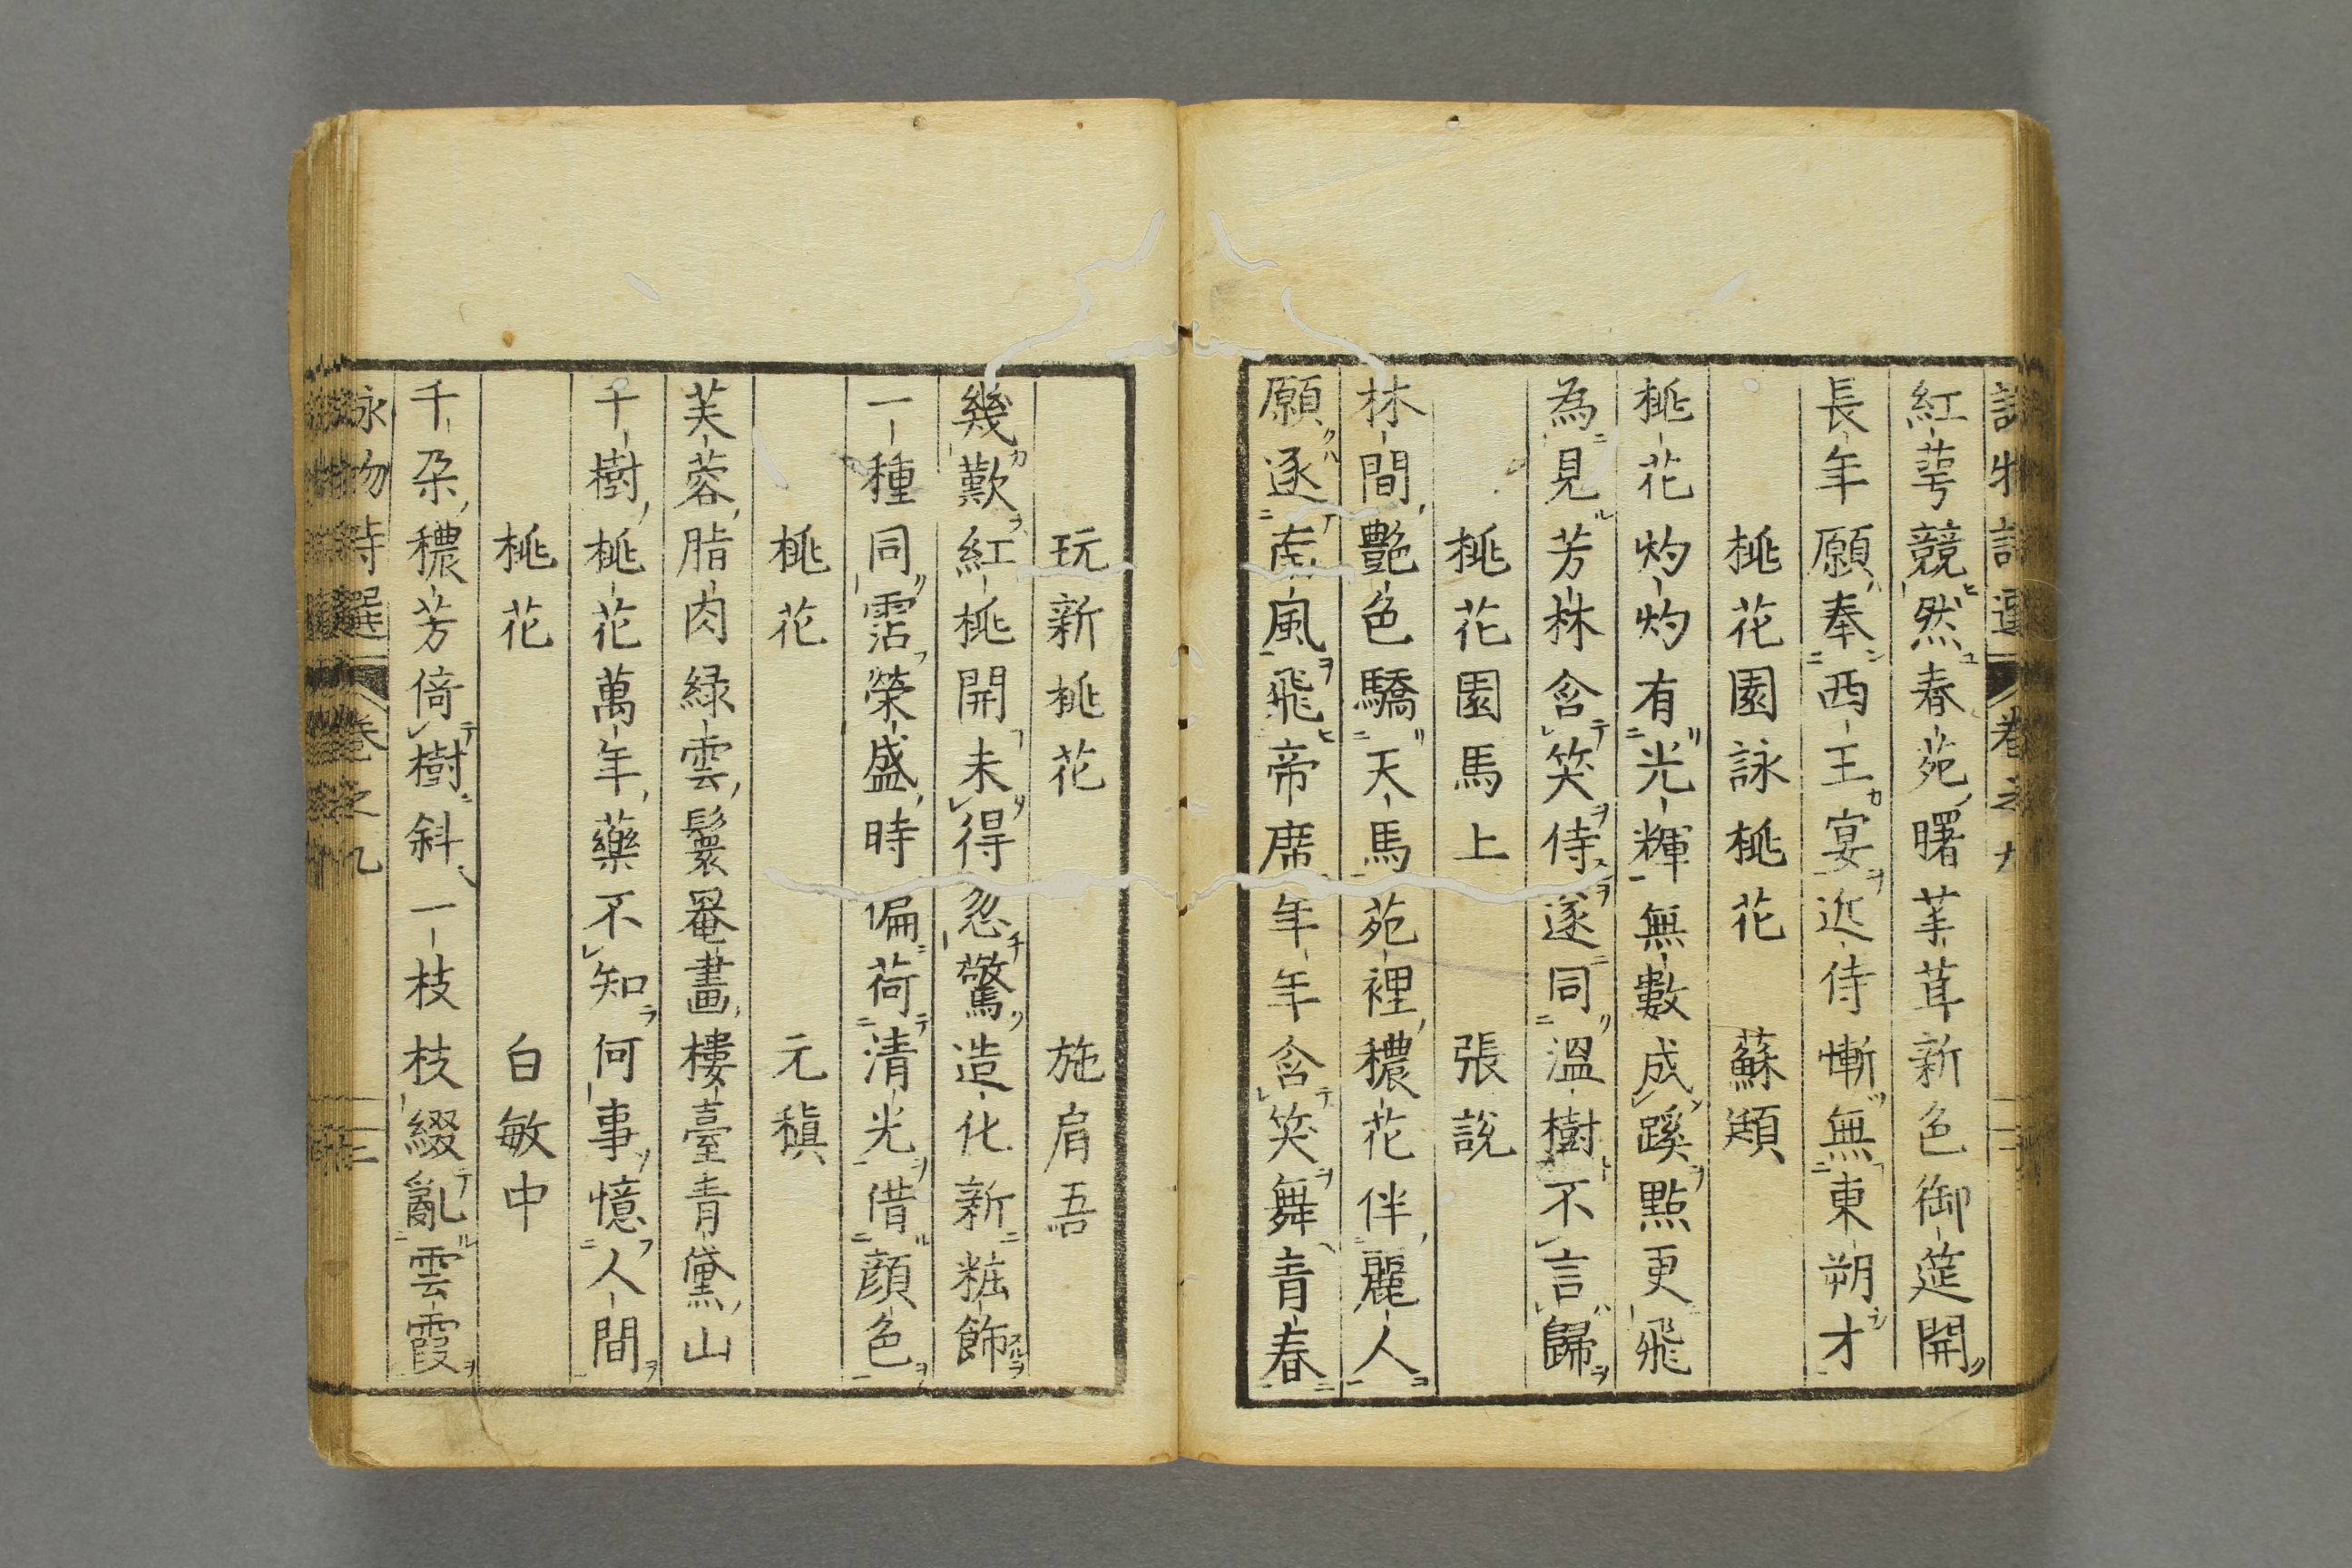 紅萼競然春苑曙茸茸新色御筵開
長年願奉西王宴近侍慚無東朔才
桃花園詠桃花 蘇頲
桃花灼灼有光輝無數成蹊點更飛
為見芳林含笑侍遂同溫樹不言歸
桃花園馬上 張說
林間艷色驕天馬苑裡穠花伴麗人
願逐南風飛帝席年年含笑舞青春
玩新桃花 施肩吾
幾歎紅桃開未得忽驚造化新粧飾
一種同霑榮盛時偏荷清光借顏色
桃花 元稹
芙蓉脂肉綠雲鬟罨畫樓臺青黛山
千樹桃花萬年藥不知何事憶人間
桃花 白敏中
千朶穠芳倚樹斜一枝枝綴亂雲霞
詠物詩選 卷之九